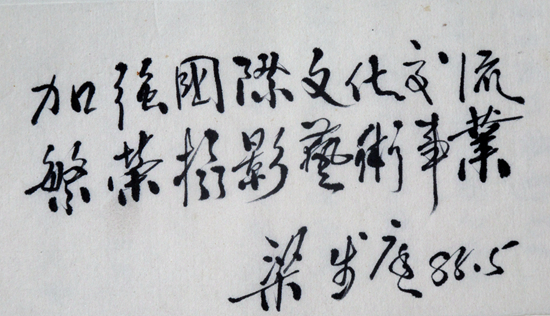 加强國際文化交流
繁荣摄影藝術事業
梁步庭 88.5